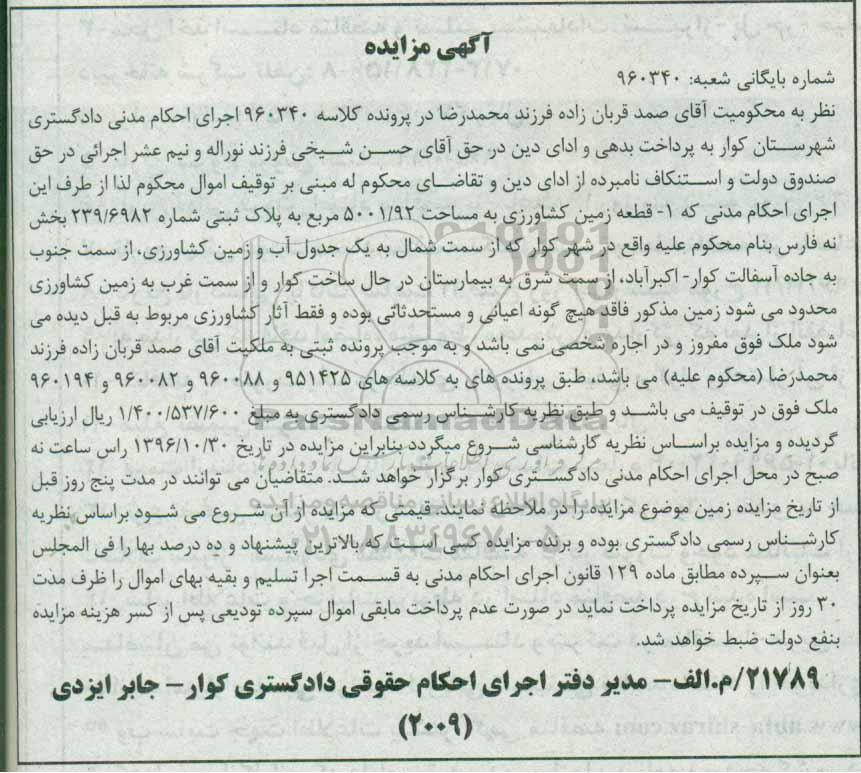 آگهی مزایده
شماره بایگانی شعبه: ۹۶۰۳۴۰
نظر به محکومیت آقای صمد قربان زاده فرزند محمدرضا در پرونده کلاسه ۹۶۰۳۴۰ اجرای احکام مدنی دادگستری
شهرستان کوار به پرداخت بدهی و ادای دین در حق آقای حسن شیخی فرزند نوراله و نیم عشر اجرائی در حق
صندوق دولت و استنکاف نامبرده از ادای دین و تقاضای محکوم له مبنی بر توقیف اموال محکوم لذا از طرف این
اجرای احکام مدنی که ۱- قطعه زمین کشاورزی به مساحت ۵۰۰۱/۹۲ مربع به پلاک ثبتی شماره ۲۳۹/۶۹۸۲ بخش
نه فارس بنام محکوم علیه واقع در شهر کوار که از سمت شمال به یک جدول آب و زمین کشاورزی، از سمت جنوب
به جاده آسفالت کوار- اکبرآباد، از سمت شرق به بیمارستان در حال ساخت کوار و از سمت غرب به زمین کشاورزی
محدود می شود زمین مذکور فاقد هیچ گونه اعیانی و مستحدثاتی بوده و فقط آثار کشاورزی مربوط به قبل دیده می
شود ملک فوق مفروز و در اجاره شخصی نمی باشد و به موجب پرونده ثبتی به ملکیت آقای صمد قربان زاده فرزند
محمدرضا (محکوم علیه) می باشد، طبق پرونده های به کلاسه های ۹۵۱۴۲۵ و ۹۶۰۰۸۸ و ۹۶۰۰۸۲ و ۹۶۰۱۹۴
ملک فوق در توقیف می باشد و طبق نظریه کارشناس رسمی دادگستری به مبلغ ۱/۴۰۰/۵۳۷/۶۰۰ ریال ارزیابی
گردیده و مزایده براساس نظریه کارشناسی شروع میگردد بنابراین مزایده در تاریخ ۱۳۹۶/۱۰/۳۰ راس ساعت نه
صبح در محل اجرای احکام مدنی دادگستری کوار برگزار خواهد شد. متقاضیان می توانند در مدت پنج روز قبل
از تاریخ مزایده زمین موضوع مزایده را در ملاحظه نمایند. قیمتی که مزایده از آن شروع می شود براساس نظریه
کارشناس رسمی دادگستری بوده و برنده مزایده کسی است که بالاترین پیشنهاد و ده درصد بها را فی المجلس
بعنوان سپرده مطابق ماده ۱۲۹ قانون اجرای احکام مدنی به قسمت اجرا تسلیم و بقیه بهای اموال را ظرف مدت
۳۰ روز از تاریخ مزایده پرداخت نماید در صورت عدم پرداخت مابقی اموال سپرده تودیعی پس از کسر هزینه مزایده
بنفع دولت ضبط خواهد شد.
۲۱۷۸۹/م.الف- مدیر دفتر اجرای احکام حقوقی دادگستری کوار- جابر ایزدی
(۲۰۰۹)
ParsNamadData